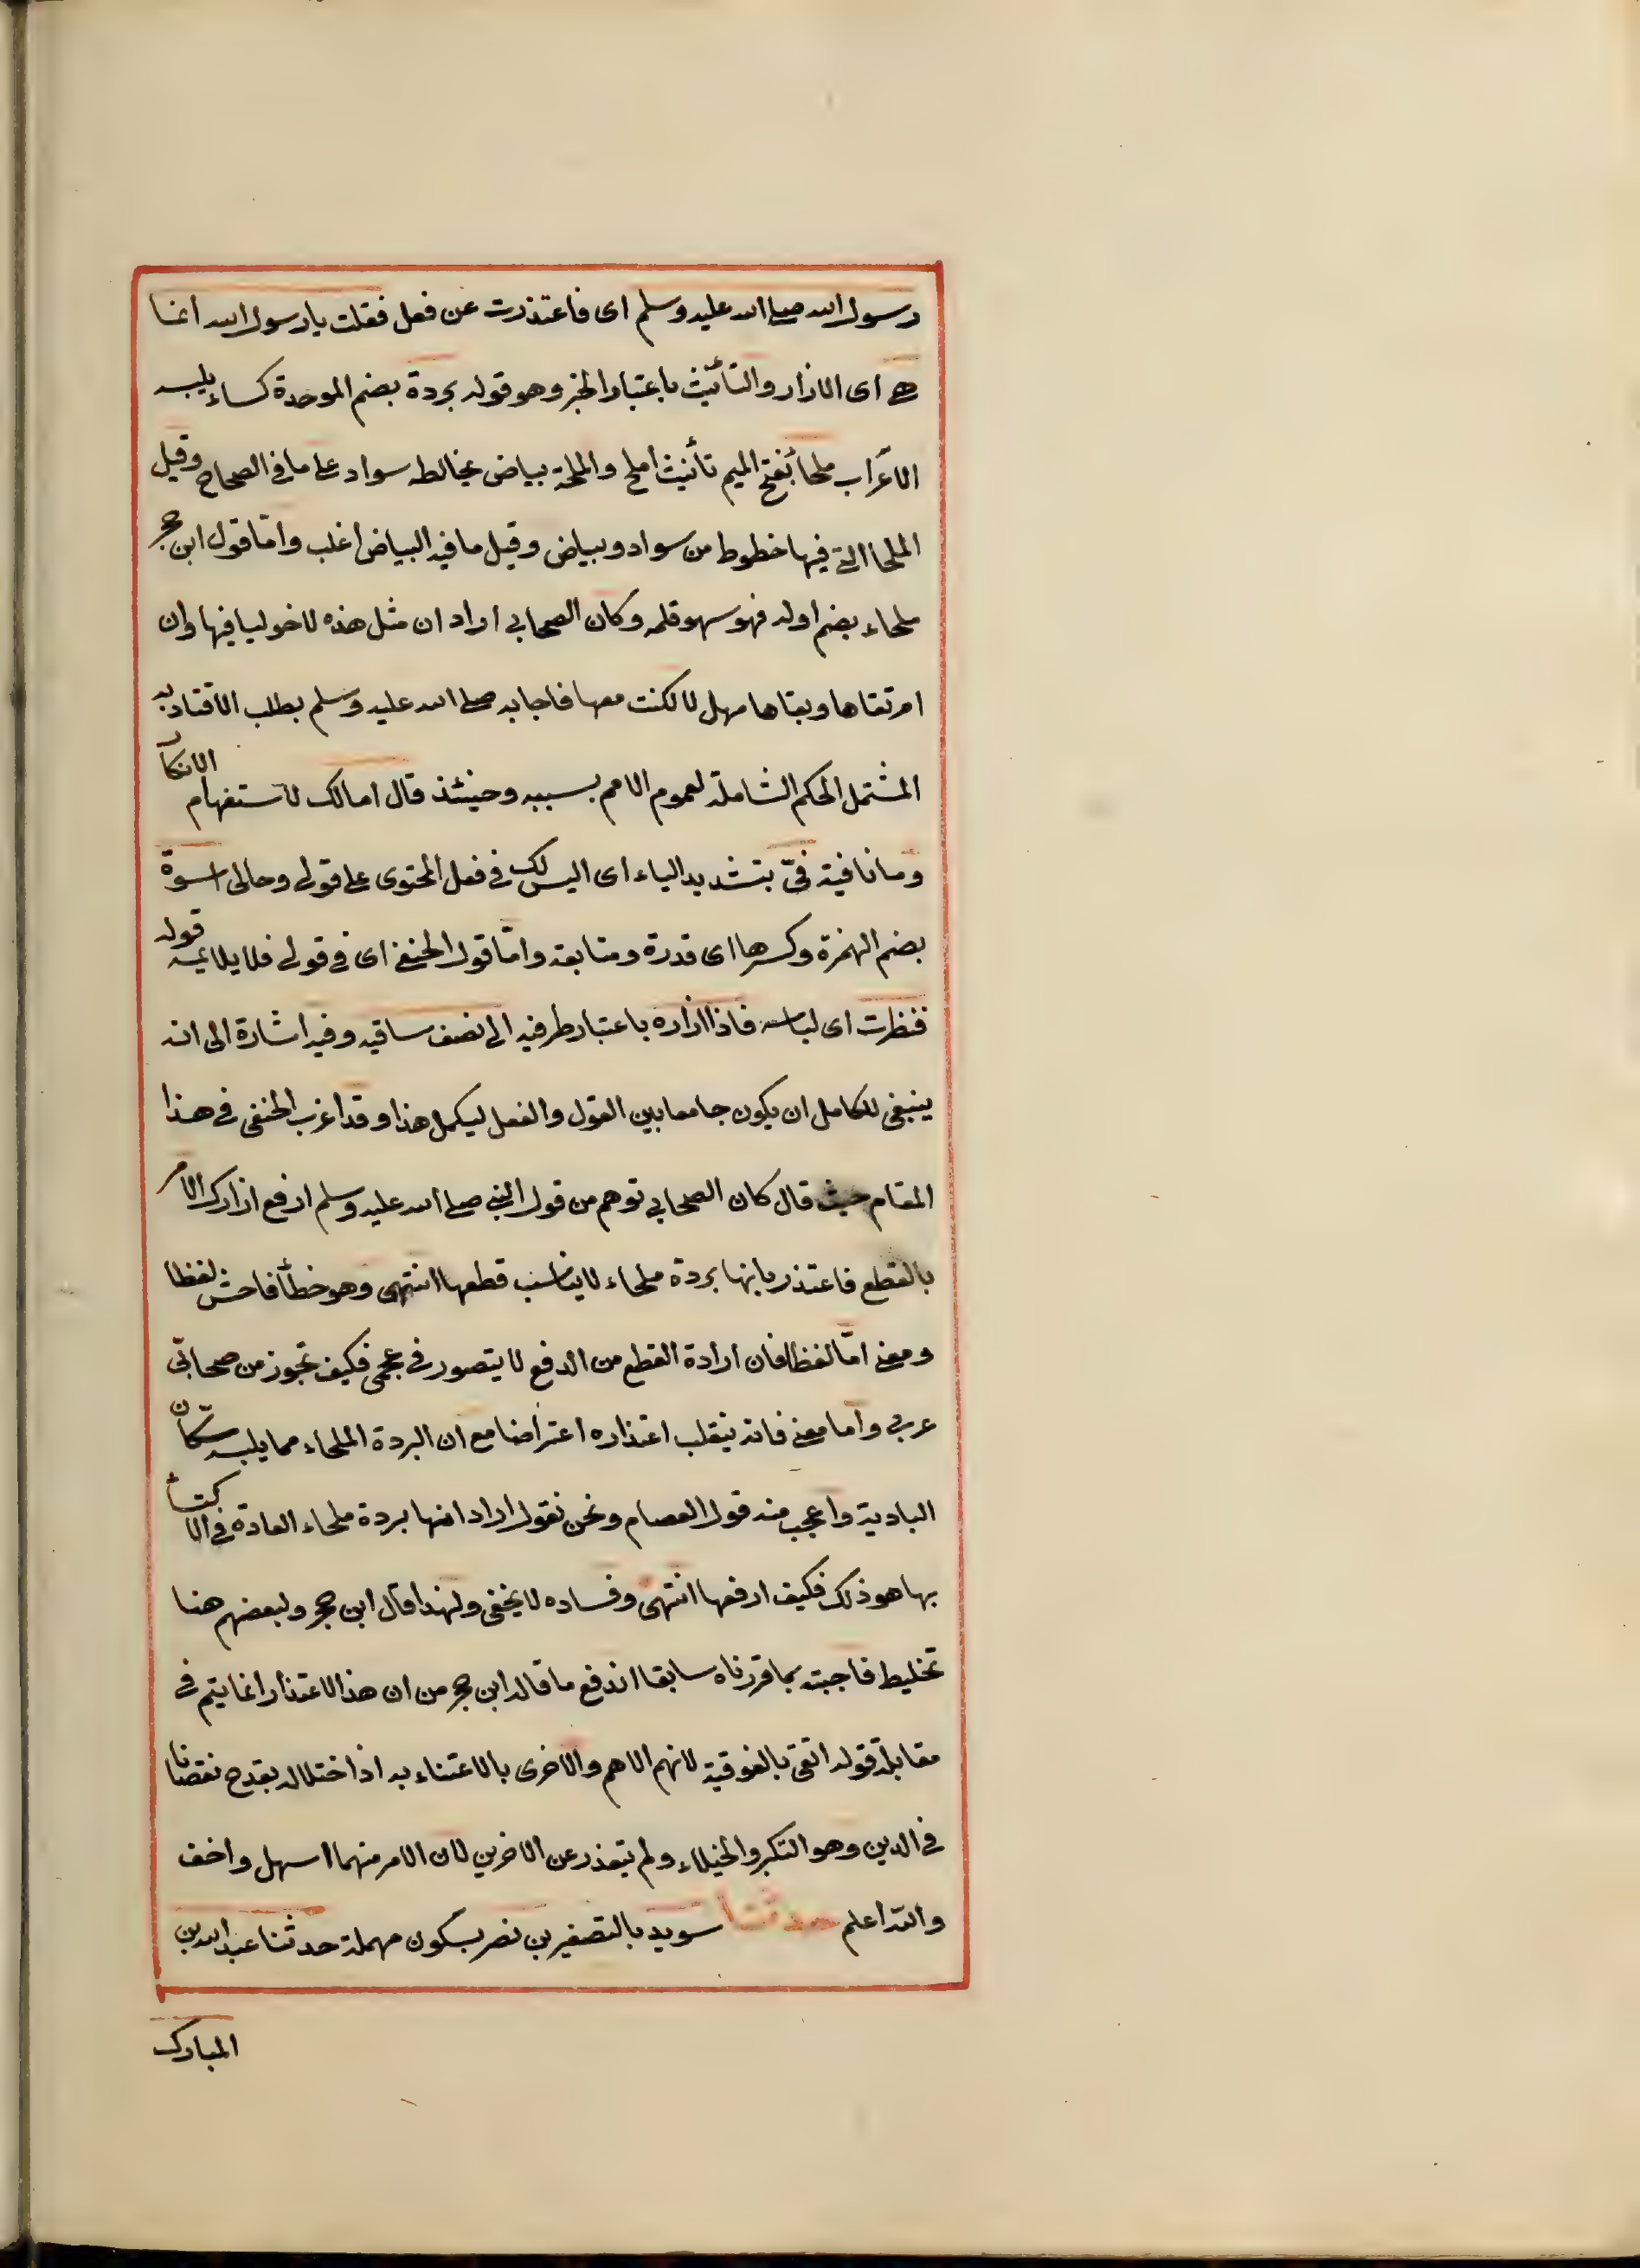 رسول الله صلى الله عليه وسلم اى فاعتذرت عن فعلى فقلت يا رسول الله انما
هى اى الازار والتأنيث باعتبار الخبر وهو قوله بردة بضم الموحدة كساء يلبسه
الاعراب ملحا بفتح الميم تأنيث املح والملحة بياض يخالطه سواد على ما فى الصحاح وقيل
الملحا التى فيها خطوط من سواد وبياض وقيل ما فيه البياض اغلب واما قول ابن حجر
ملحاء بضم اوله فهو سهو قلمه وكان الصحابي اراد ان مثل هذه لا خوليا فيها وان
امر تقاها وبقاها سهل لا لكنت معها فاجابه صلى الله عليه وسلم بطلب الاقتداء به
المشتمل الحكم الشاملة لعموم الامم بسببه وحينئذ قال امالك لاستفهام الانكار
وما نافية فيّ بتشديد الياء اى اليس لك في فعلى المحتوى على قولى وحالى اسوة
بضم الهمزة وكسرها اى قدرة ومتابعة واما قول الحنفى اى في قولى فلا يلايمه قوله
فنظرت اى لباسه فاذا ازاره باعتبار طرفيه الى نصف ساقيه وفيه اشارة الى انه
ينبغى للكامل ان يكون جامعا بين القول والفعل ليكمل هذا وقد اغرب الحنفى في هذا
المقام حيث قال كان الصحابي توهم من قول النبى صلى الله عليه وسلم ارفع ازارك الامر
بالقطع فاعتذر بانها بردة ملحاء لا يناسب قطعها انتهى وهو خطأ فاحش لفظا
ومعنى امّا لفظا فان ارادة القطع من الدفع لا يتصور في عجمى فكيف تجوز من صحابيّ
عربي وأما معنى فانه ينقلب اعتذاره اعتراضا مع ان البردة الملحاء مما يلبسه سكّان
البادية واعجب منه قول العصام ونحن نقول اراد انها بردة ملحاء العادة في الاكتسأ
بها هو ذلك فكيف ارفعها انتهى وفساده لا يخفى ولهذا قال ابن حجر ولبعضهم هنا
تخليط فاجبته بما قررناه سابقا اندفع ما قاله ابن حجر من ان هذا الاعتذار انما يتم في
مقابلة قوله اتقى بالفوقية لانهم الاهم والاخرى بالاعتناء به اذ اختلاله يقدح نقصانا
في الدين وهو التكبر والخيلاء ولم يتعذر عن الاخرين لان الامر منهما اسهل واخف
والله اعلم حدثنا سويد بالتصغير بن نصر بسكون مهملة حدثنا عبد الله بن
المبارك